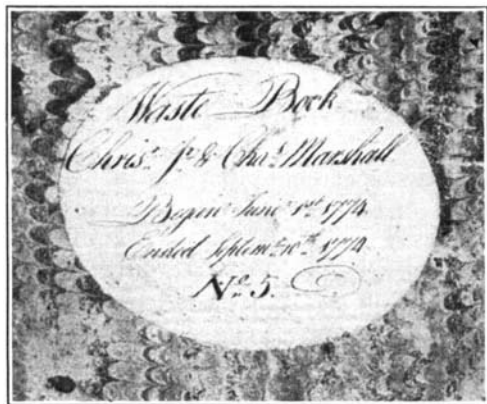 Waste Book
Chris.r Jr. & Chas. Marshall
Began June 1st 1774.
Ended Septem.r 10th 1774.
No. 5.